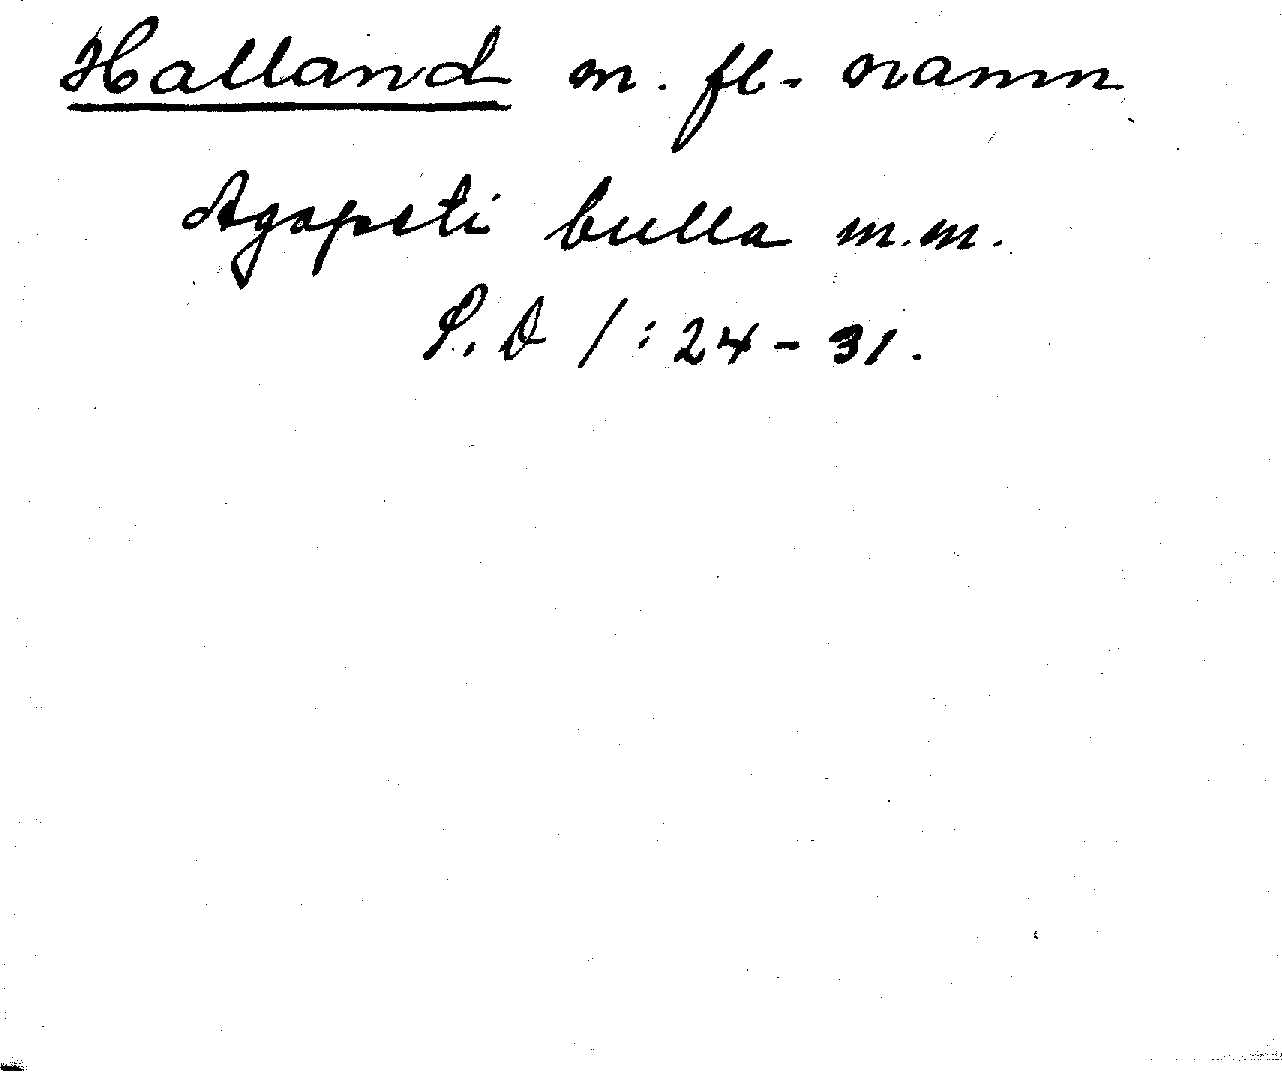 Halland m. fl. namn
Agapeti bulla m.m.
S. D 1:24-31.